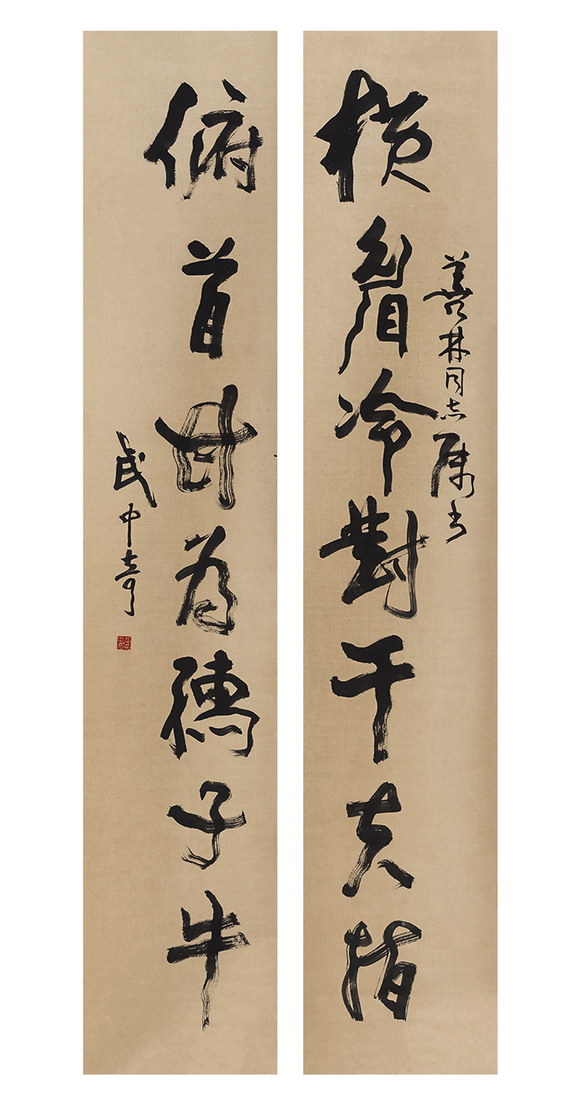 善林同志属书
横眉冷對千夫指
俯首甘为孺子牛
武中奇